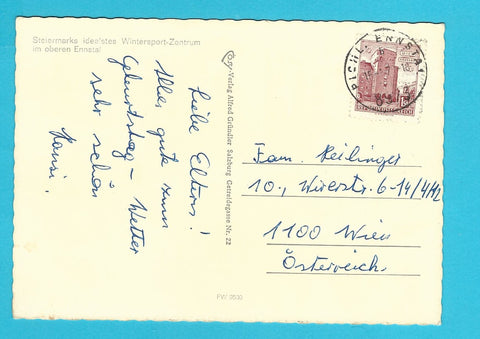 Steiermarks idealstes Wintersport-Zentrum
im oberen Ennstal
Liebe Eltern!
Alles gute zum
Geburtstag - Wetter
sehr schön
Hansi.
Verlag Alfred Gründler Salzburg Getreidegasse Nr. 22
PICHL, ENNSTAL
Fam. Reilinger
10., 6-14/4/12
1100 Wien
Österreich.
PW 9530